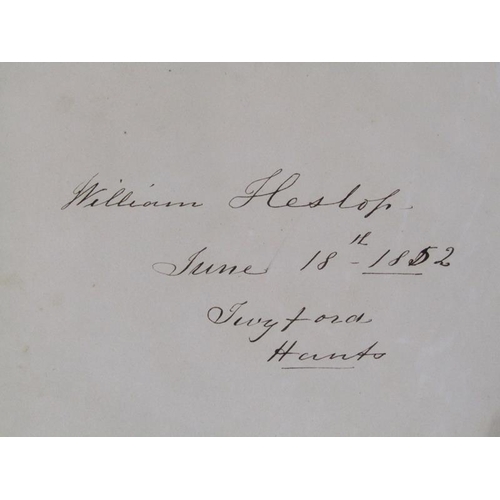 William Heslop.
June 18th - 1852
Twyford
Hants